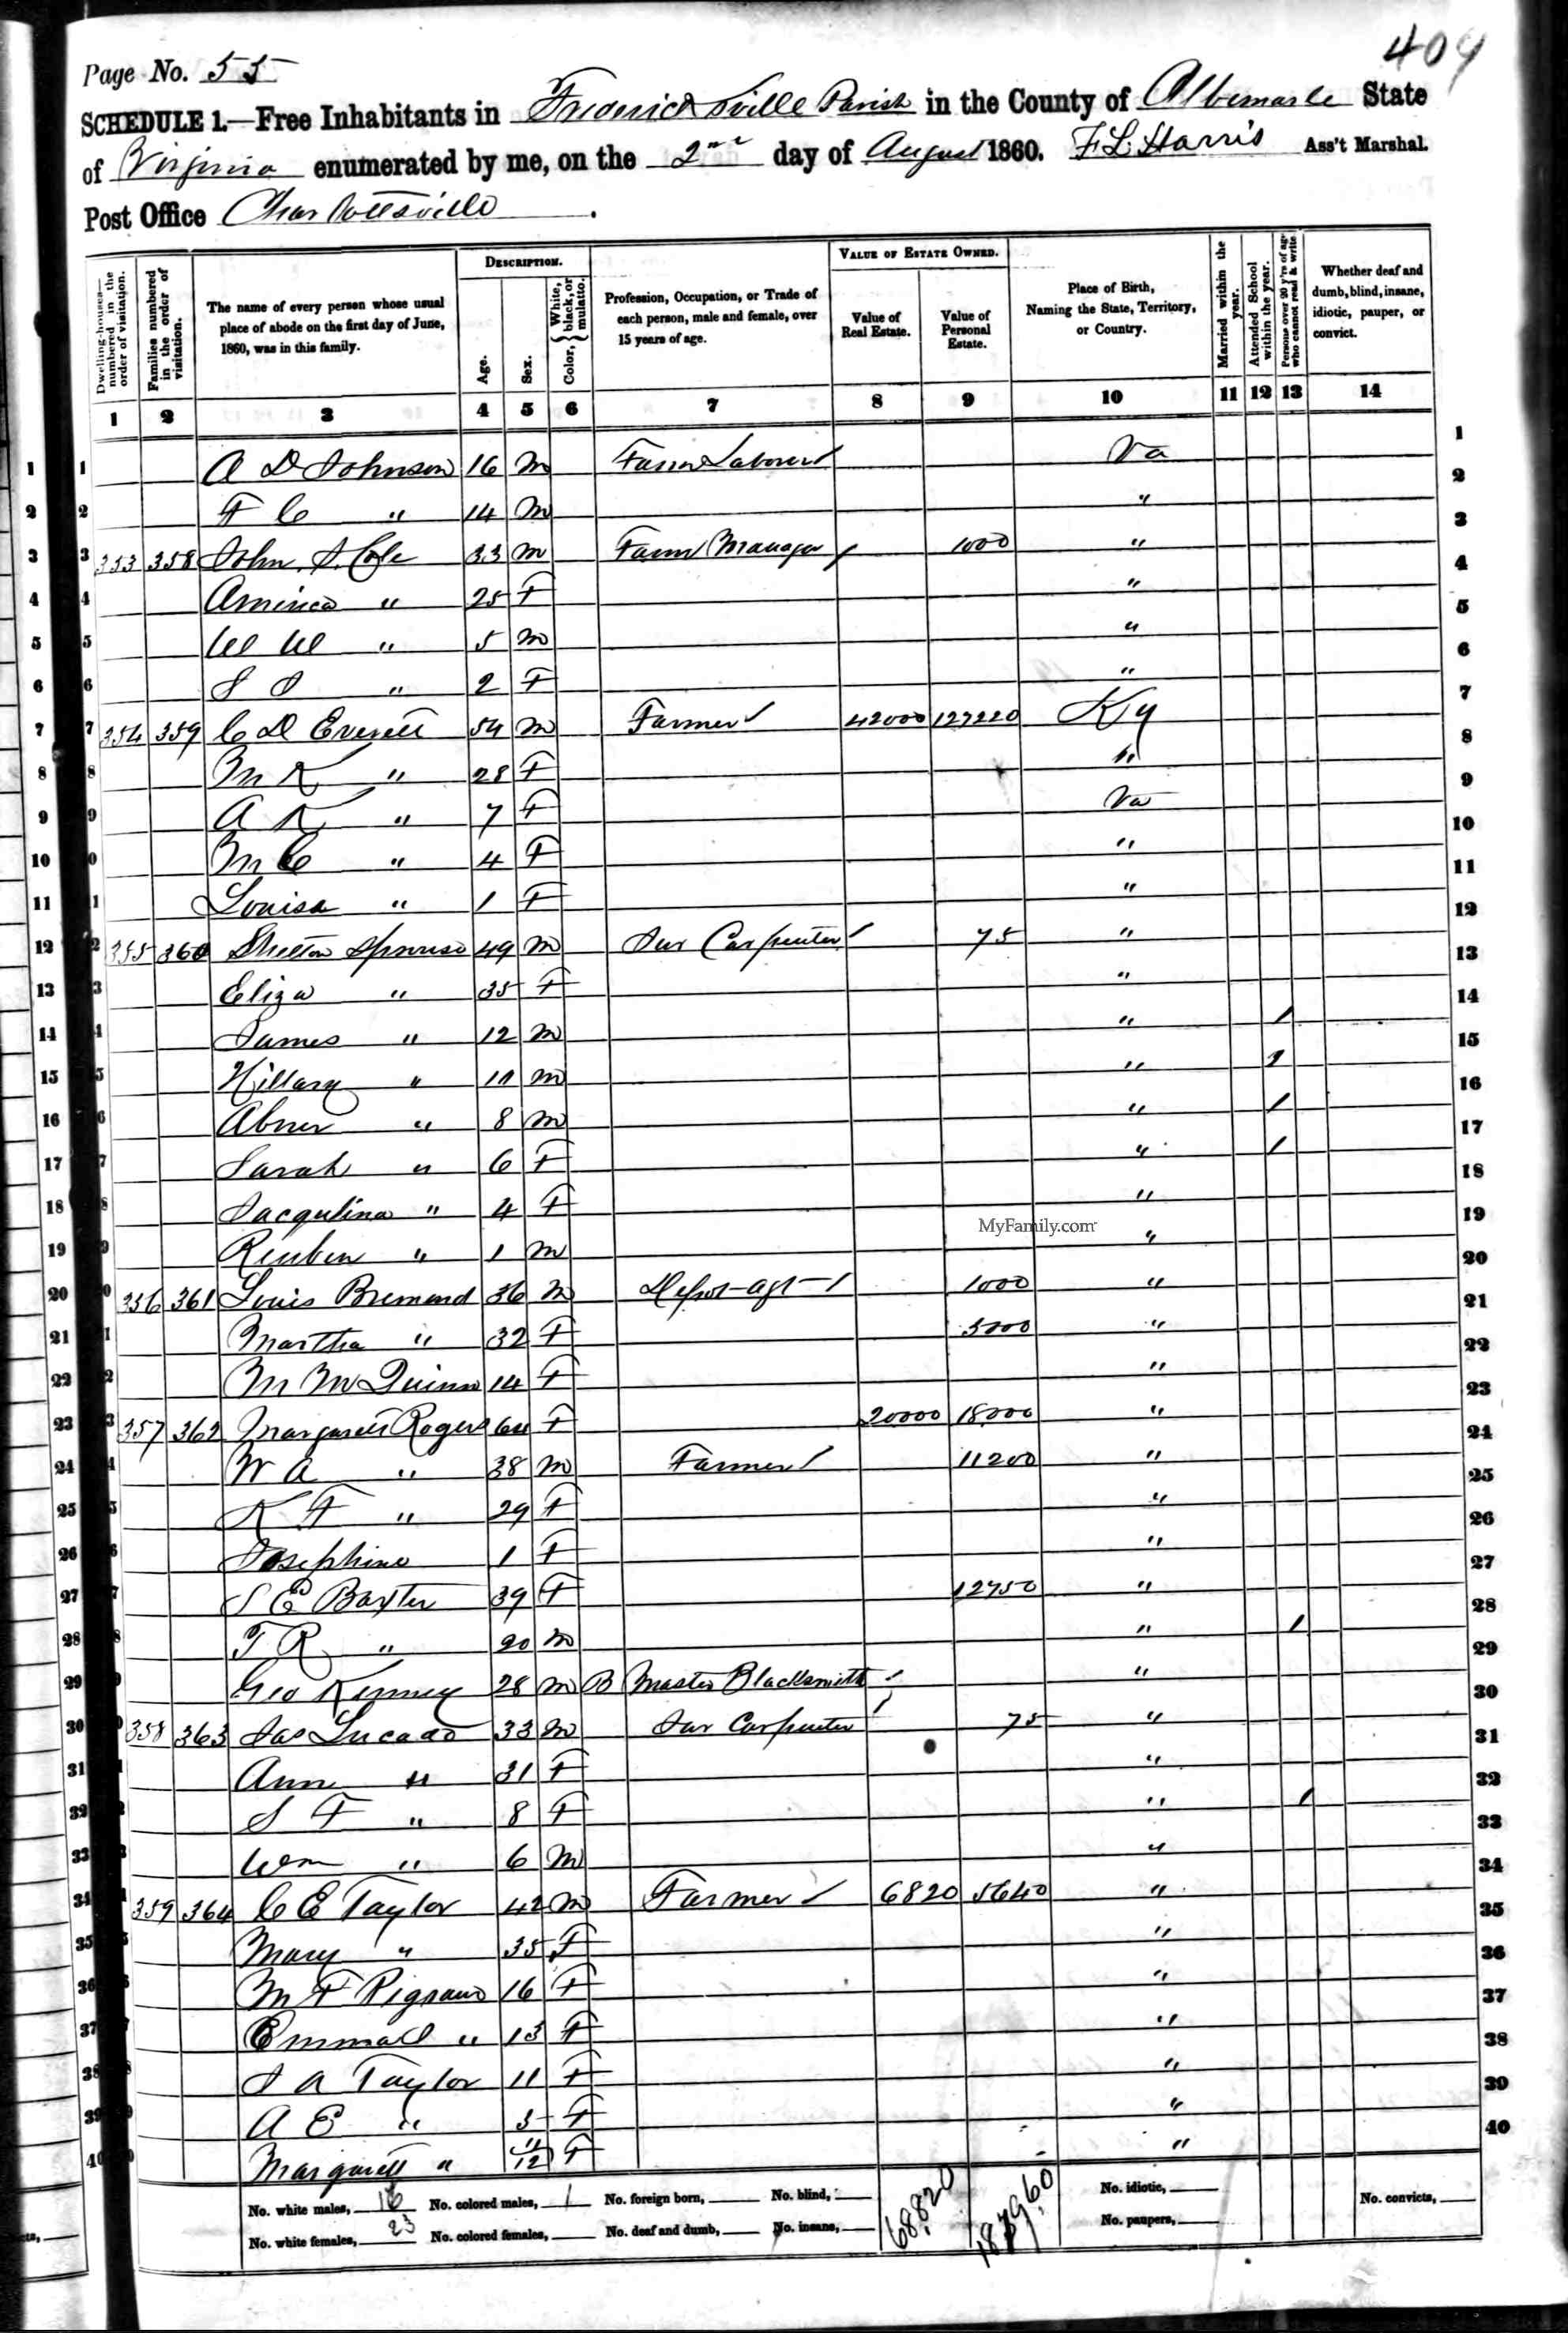 404
Page No. 55
SCHEDULE 1.—Free Inhabitants in Fredericksville Parish in the County of Albemarle State
of Virginia enumerated by me, on the 2nd day of August 1860. F. L. Harris Ass't Marshal.
Post Office Charlottesville.
Dwelling-houses—numbered in the order of visitation.
Families numbered in the order of visitation.
The name of every person whose usual place of abode on the first day of June, 1860, was in this family.
DESCRIPTION.
Age.
Sex.
Color, { White, black, or mulatto.
Profession, Occupation, or Trade of each person, male and female, over 15 years of age.
VALUE OF ESTATE OWNED.
Value of Real Estate.
Value of Personal Estate.
Place of Birth, Naming the State, Territory, or Country.
Married within the year.
Attended School within the year.
Persons over 20 y'rs of age who cannot read & write
Whether deaf and dumb, blind, insane, idiotic, pauper, or convict.
1 2 3 4 5 6 7 8 9 10 11 12 13 14
1 A D Johnson 16 m Farm Laborer / Va 1
2 F C " 14 m " 2
3 353 358 John S. Cole 33 m Farm Manager / 1000 " 3
4 America " 25 F " 4
5 W W " 5 m " 5
6 S J " 2 F " 6
7 354 359 C D Everett 54 m Farmer / 42000 127220 Ky 7
8 M K " 28 F " 8
9 A K " 7 F Va 9
10 M C " 4 F " 10
11 Louisa " 1 F " 11
12 355 360 Shelton Sprouse 49 m Jur Carpenter / 75 " 12
13 Eliza " 35 F " 13
14 James " 12 m " / 14
15 Hillary " 10 m " 1 15
16 Abner " 8 m " / 16
17 Sarah " 6 F " / 17
18 Jacqulina " 4 F " 18
19 Reuben " 1 m " 19
MyFamily.com
20 356 361 Louis Bremond 36 m Depot-agt / 1000 " 20
21 Martha " 32 F 3000 " 21
22 M M Quinn 14 F " 22
23 357 362 Margarett Rogers 64 F 20000 18000 " 23
24 W A " 38 m Farmer / 11200 " 24
25 K F " 29 F " 25
26 Josephine 1 F " 26
27 S E Baxter 39 F 12750 " 27
28 T R " 20 m " / 28
29 Geo Kinney 28 m B Master Blacksmith / " 29
30 358 363 Jas Lucado 33 m Jur Carpenter / 75 " 30
31 Ann " 31 F " 31
32 S F " 8 F " / 32
33 Wm " 6 m " 33
34 359 364 C E Taylor 42 m Farmer / 6820 5640 " 34
35 Mary " 35 F " 35
36 M F 16 F " 36
37 Emma " 13 F " 37
38 J A Taylor 11 F " 38
39 A E " 5 F " 39
40 Margarett " 11/12 F " 40
No. white males, 16 No. colored males, 1 No. foreign born, No. blind, 68,820 187,960 No. idiotic, No. convicts,
No. white females, 23 No. colored females, No. deaf and dumb, No. insane, No. paupers,